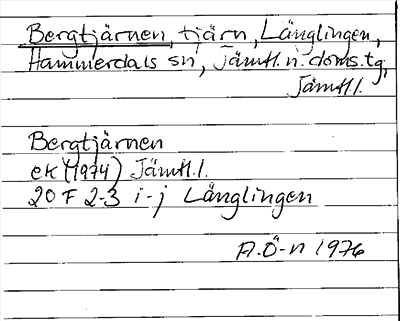 Bergtjärnen, tjärn, Länglingen,
Hammerdals sn, Jämtl. n. doms.tg,
Jämtl.l.
Bergtjärnen
ek (1974) Jämtl.l.
20 F 2-3 i-j Länglingen
A.Ö-n 1976